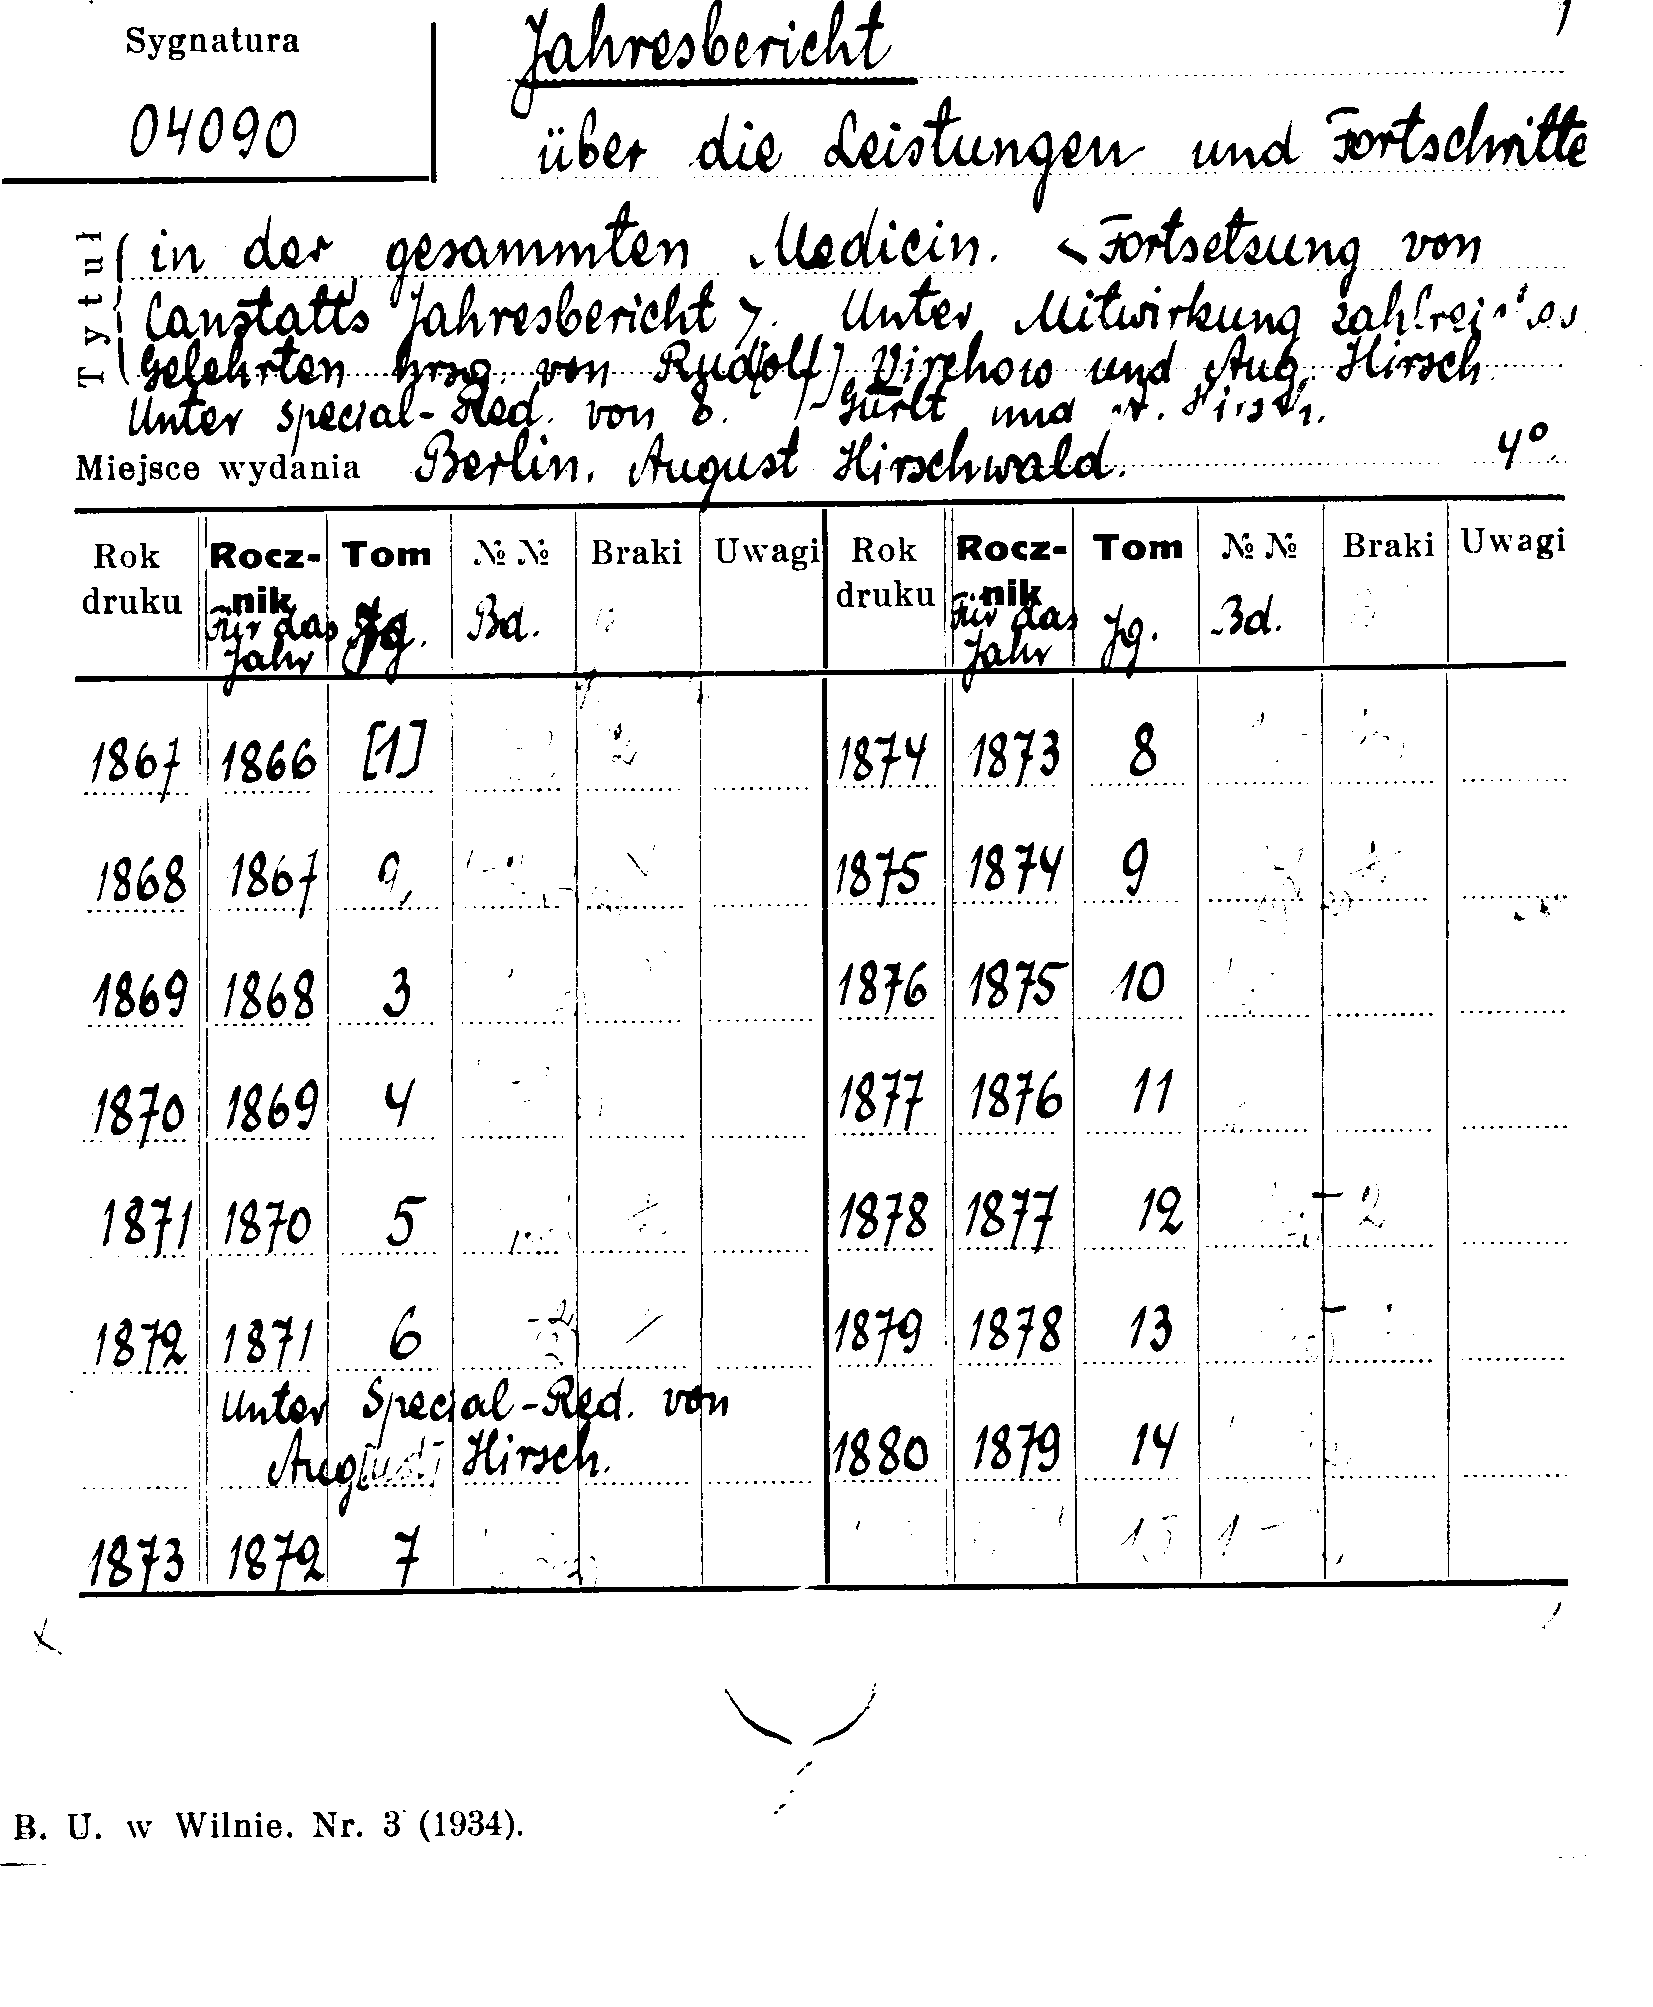 Sygnatura
04090
Jahresbericht
über die Leistungen und Fortschritte
Tytuł
in der gesammten Medicin. <Fortsetzung von
Canstatts Jahresbericht>. Unter Mitwirkung
Gelehrten hrsg. von Rud[olf] Virchow und Aug. Hirsch
Unter special-Red. von Gurlt und A. Hirsch.
Miejsce wydania Berlin. August Hirschwald. 4°
Rok druku Rocznik Für das Jahr Tom Jg. №№ Bd. Braki Uwagi Rok druku Rocznik Für das Jahr Tom Jg. №№ Bd. Braki Uwagi
1867 1866 [1] 1874 1873 8
1868 1867 2 1875 1874 9
1869 1868 3 1876 1875 10
1870 1869 4 1877 1876 11
1871 1870 5 1878 1877 12
1872 1871 6 1879 1878 13
Unter Special-Red. von
Aug[ust] Hirsch. 1880 1879 14
1873 1872 7
B. U. w Wilnie. Nr. 3 (1934).